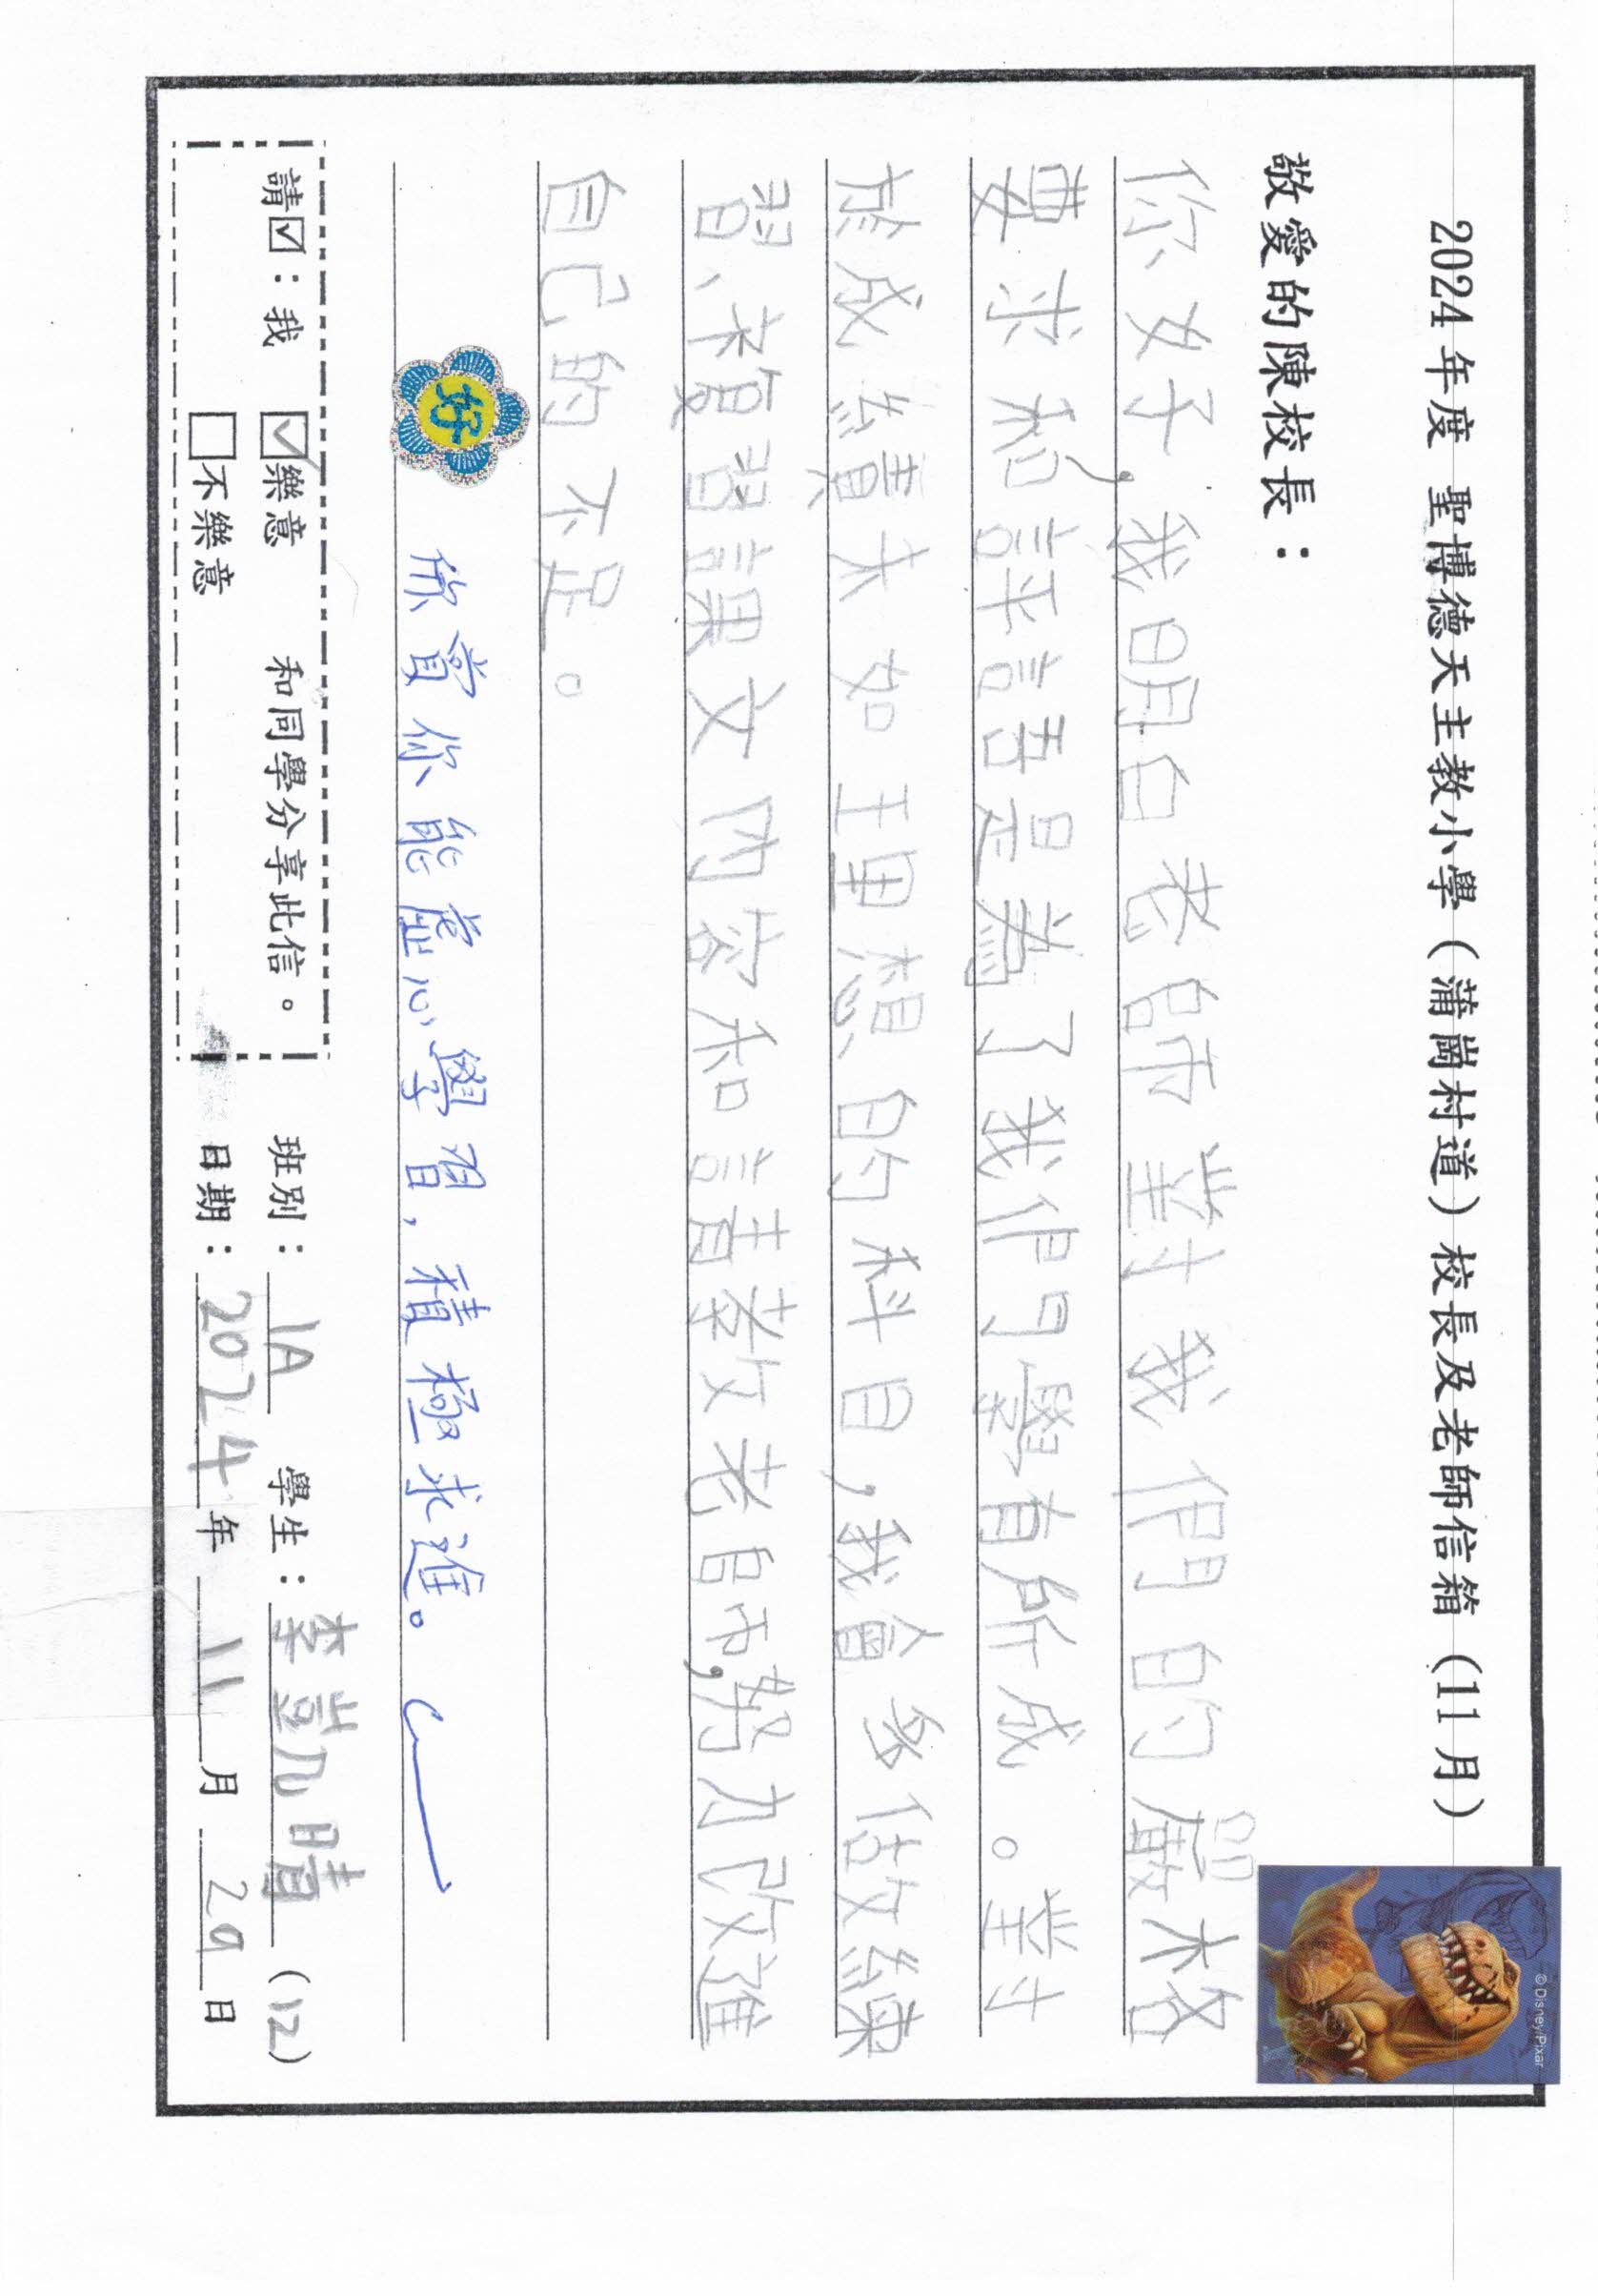 2024年度 聖博德天主教小學（蒲崗村道）校長及老師信箱（11月）
© Disney/Pixar
敬愛的陳校長：
你好，我明白老師對我們的嚴格
要求和評語是為了我們學有所成。對
於成績未如理想的科目，我會多做練
習、複習課文內容和請教老師，努力改進
自己的不足。
好
欣賞你能虛心學習，積極求進。
請☑：我 ☑樂意 和同學分享此信。
□不樂意
班別：1A 學生：李凱晴（12）
日期：2024年11月29日